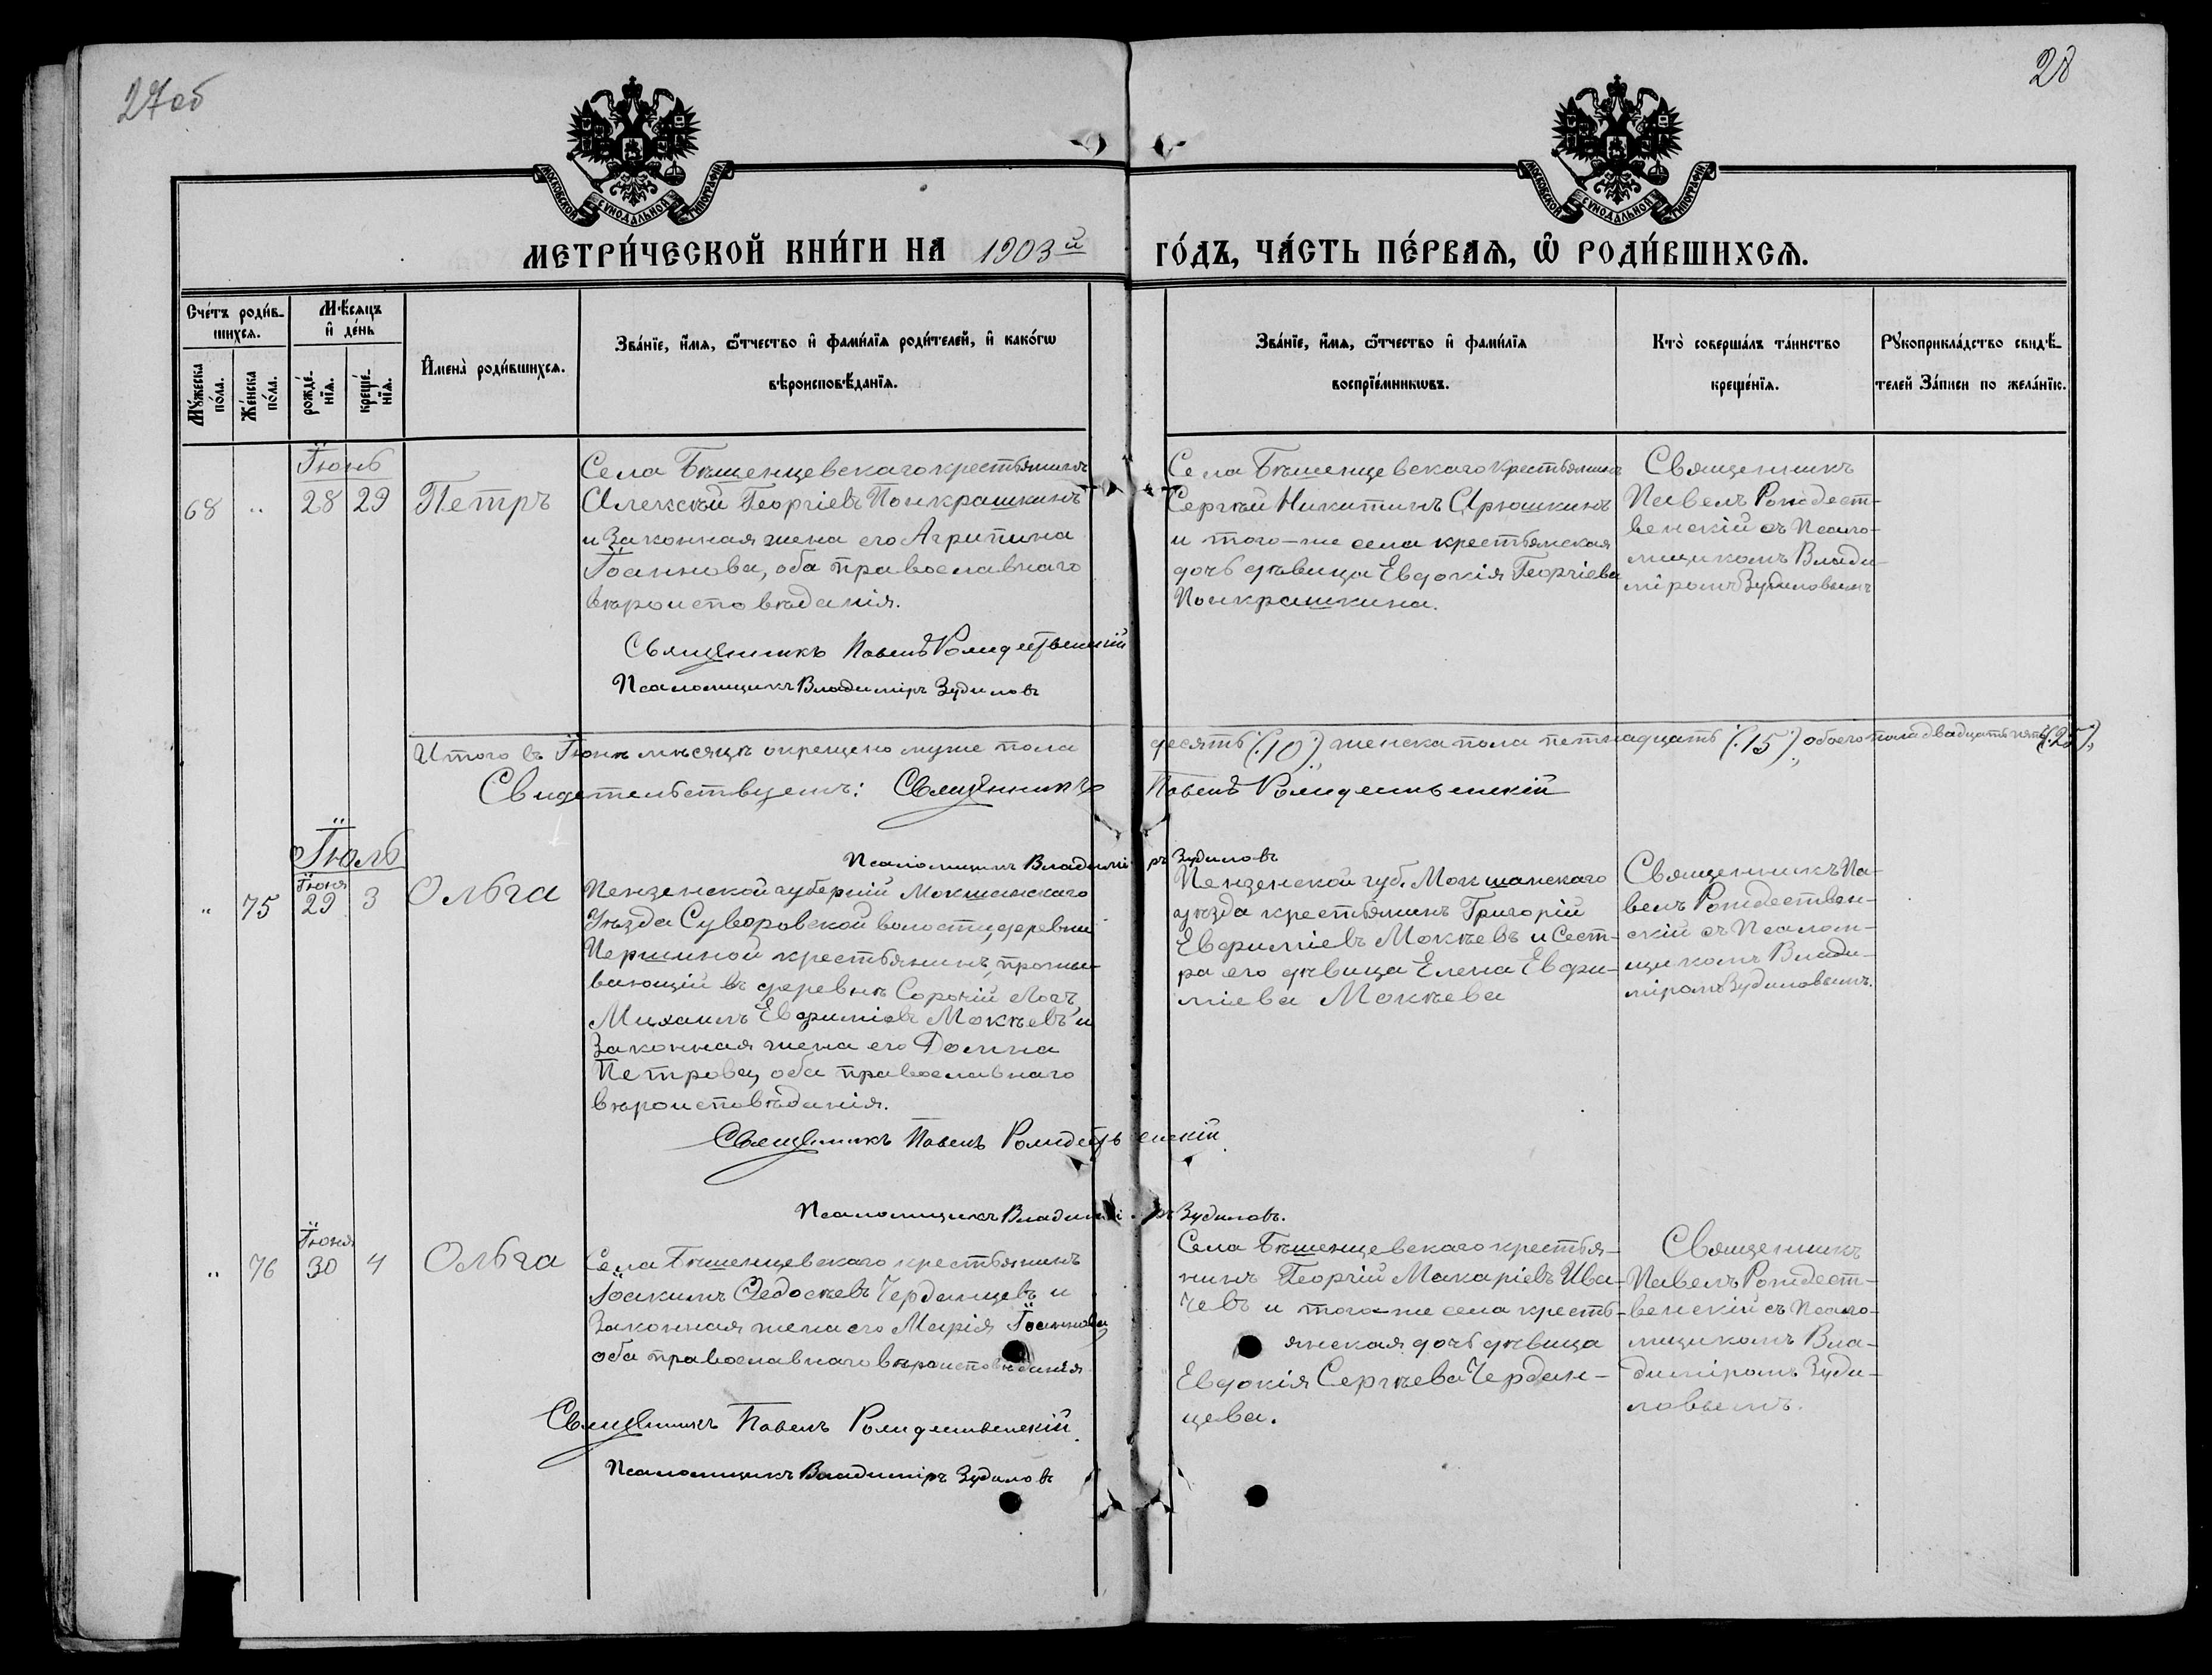 27об
28
МОСКОВСКОЙ СѴНОДАЛЬНОЙ ТИПОГРАФІИ
МОСКОВСКОЙ СѴНОДАЛЬНОЙ ТИПОГРАФІИ
МЕТРИ́ЧЕСКОЙ КНИ́ГИ НА 1903й ГО́ДЪ, ЧА́СТЬ ПЕ́РВАѦ, Ѡ РОДИ́ВШИХСѦ.
Сче́тъ роди́в-
шихсѧ.
Мѣ́сѧцъ
и҆ де́нь
Мꙋ́жеска
по́ла.
Же́нска
по́ла.
рожде́-
нїѧ.
креще́-
нїѧ.
И҆мена̀ роди́вшихсѧ.
Зва́нїе, и҆́мѧ, ѻ҆́тчество и҆ фами́лїѧ роди́телей, и҆ како́гѡ
вѣроисповѣ́данїѧ.
Зва́нїе, и҆́мѧ, ѻ҆́тчество и҆ фами́лїѧ
воспрїе́мникѡвъ.
Кто̀ соверша́лъ та́инство
креще́нїѧ.
Рꙋкоприкла́дство свидѣ́-
телей За́писи по жела́нїю.
Іюнь
68 " 28 29 Петръ
Села Бѣшенцевскаго крестьянинъ
Алексѣй Георгіевъ Понкрашкинъ
и законная жена его Агрипина
Іоаннова, оба православнаго
вѣроисповѣданія.
Священникъ Павелъ Рождественскій
Псаломщикъ Владиміръ Зудиловъ
Села Бѣшенцевскаго крестьянинъ
Сергѣй Никитинъ Арюшкинъ
и того-же села крестьянская
дочь дѣвица Евдокія Георгіева
Понкрашкина.
Священникъ
Павелъ Рождест-
венскій съ Псало-
мщикомъ Влади-
міромъ Зудиловымъ
Итого въ Іюнѣ мѣсяцѣ окрещено муже пола десять (.10.), женска пола петнадцать (.15.), обоего пола двадцать пять (.25.),
Свидетельствуемъ: Священникъ Павелъ Рождественскій
Псаломщикъ Владиміръ Зудиловъ
Іюль
" 75 Іюня 29 3 Ольга
Пензенской губерніи Мокшанскаго
Уѣзда Суворовской волости, деревни
Першиной крестьянинъ, прожи-
вающій въ деревнѣ Сорочій Логъ,
Михаилъ Евфиміевъ Мокѣевъ и
Законная жена его Домна
Петрова, оба православнаго
вѣроисповѣданія.
Священникъ Павелъ Рождественскій.
Псаломщикъ Владиміръ Зудиловъ.
Пензенской губ. Мокшанскаго
уѣзда крестьянинъ Григорій
Евфиміевъ Мокѣевъ и Сест-
ра его дѣвица Елена Евфи-
міева Мокѣева
Священникъ Па-
велъ Рождествен-
скій съ Псалом-
щикомъ Влади-
міромъ Зудиловымъ.
" 76 Іюня 30 4 Ольга
Села Бѣшенцевскаго крестьянинъ
Іоакимъ Ѳедосѣевъ Черданцевъ и
Законная жена его Марія Іоаннова
оба православнаго вѣроисповѣданія
Священникъ Павелъ Рождественскій.
Псаломщикъ Владиміръ Зудиловъ
Села Бѣшенцевскаго крестья-
нинъ Георгій Макаріевъ Ива-
чевъ и того-же села кресть-
янская дочь дѣвица
Евдокія Сергѣева Чердан-
цева.
Священникъ
Павелъ Рождест-
венскій съ Псало-
мщикомъ Вла-
диміромъ Зуди-
ловымъ.